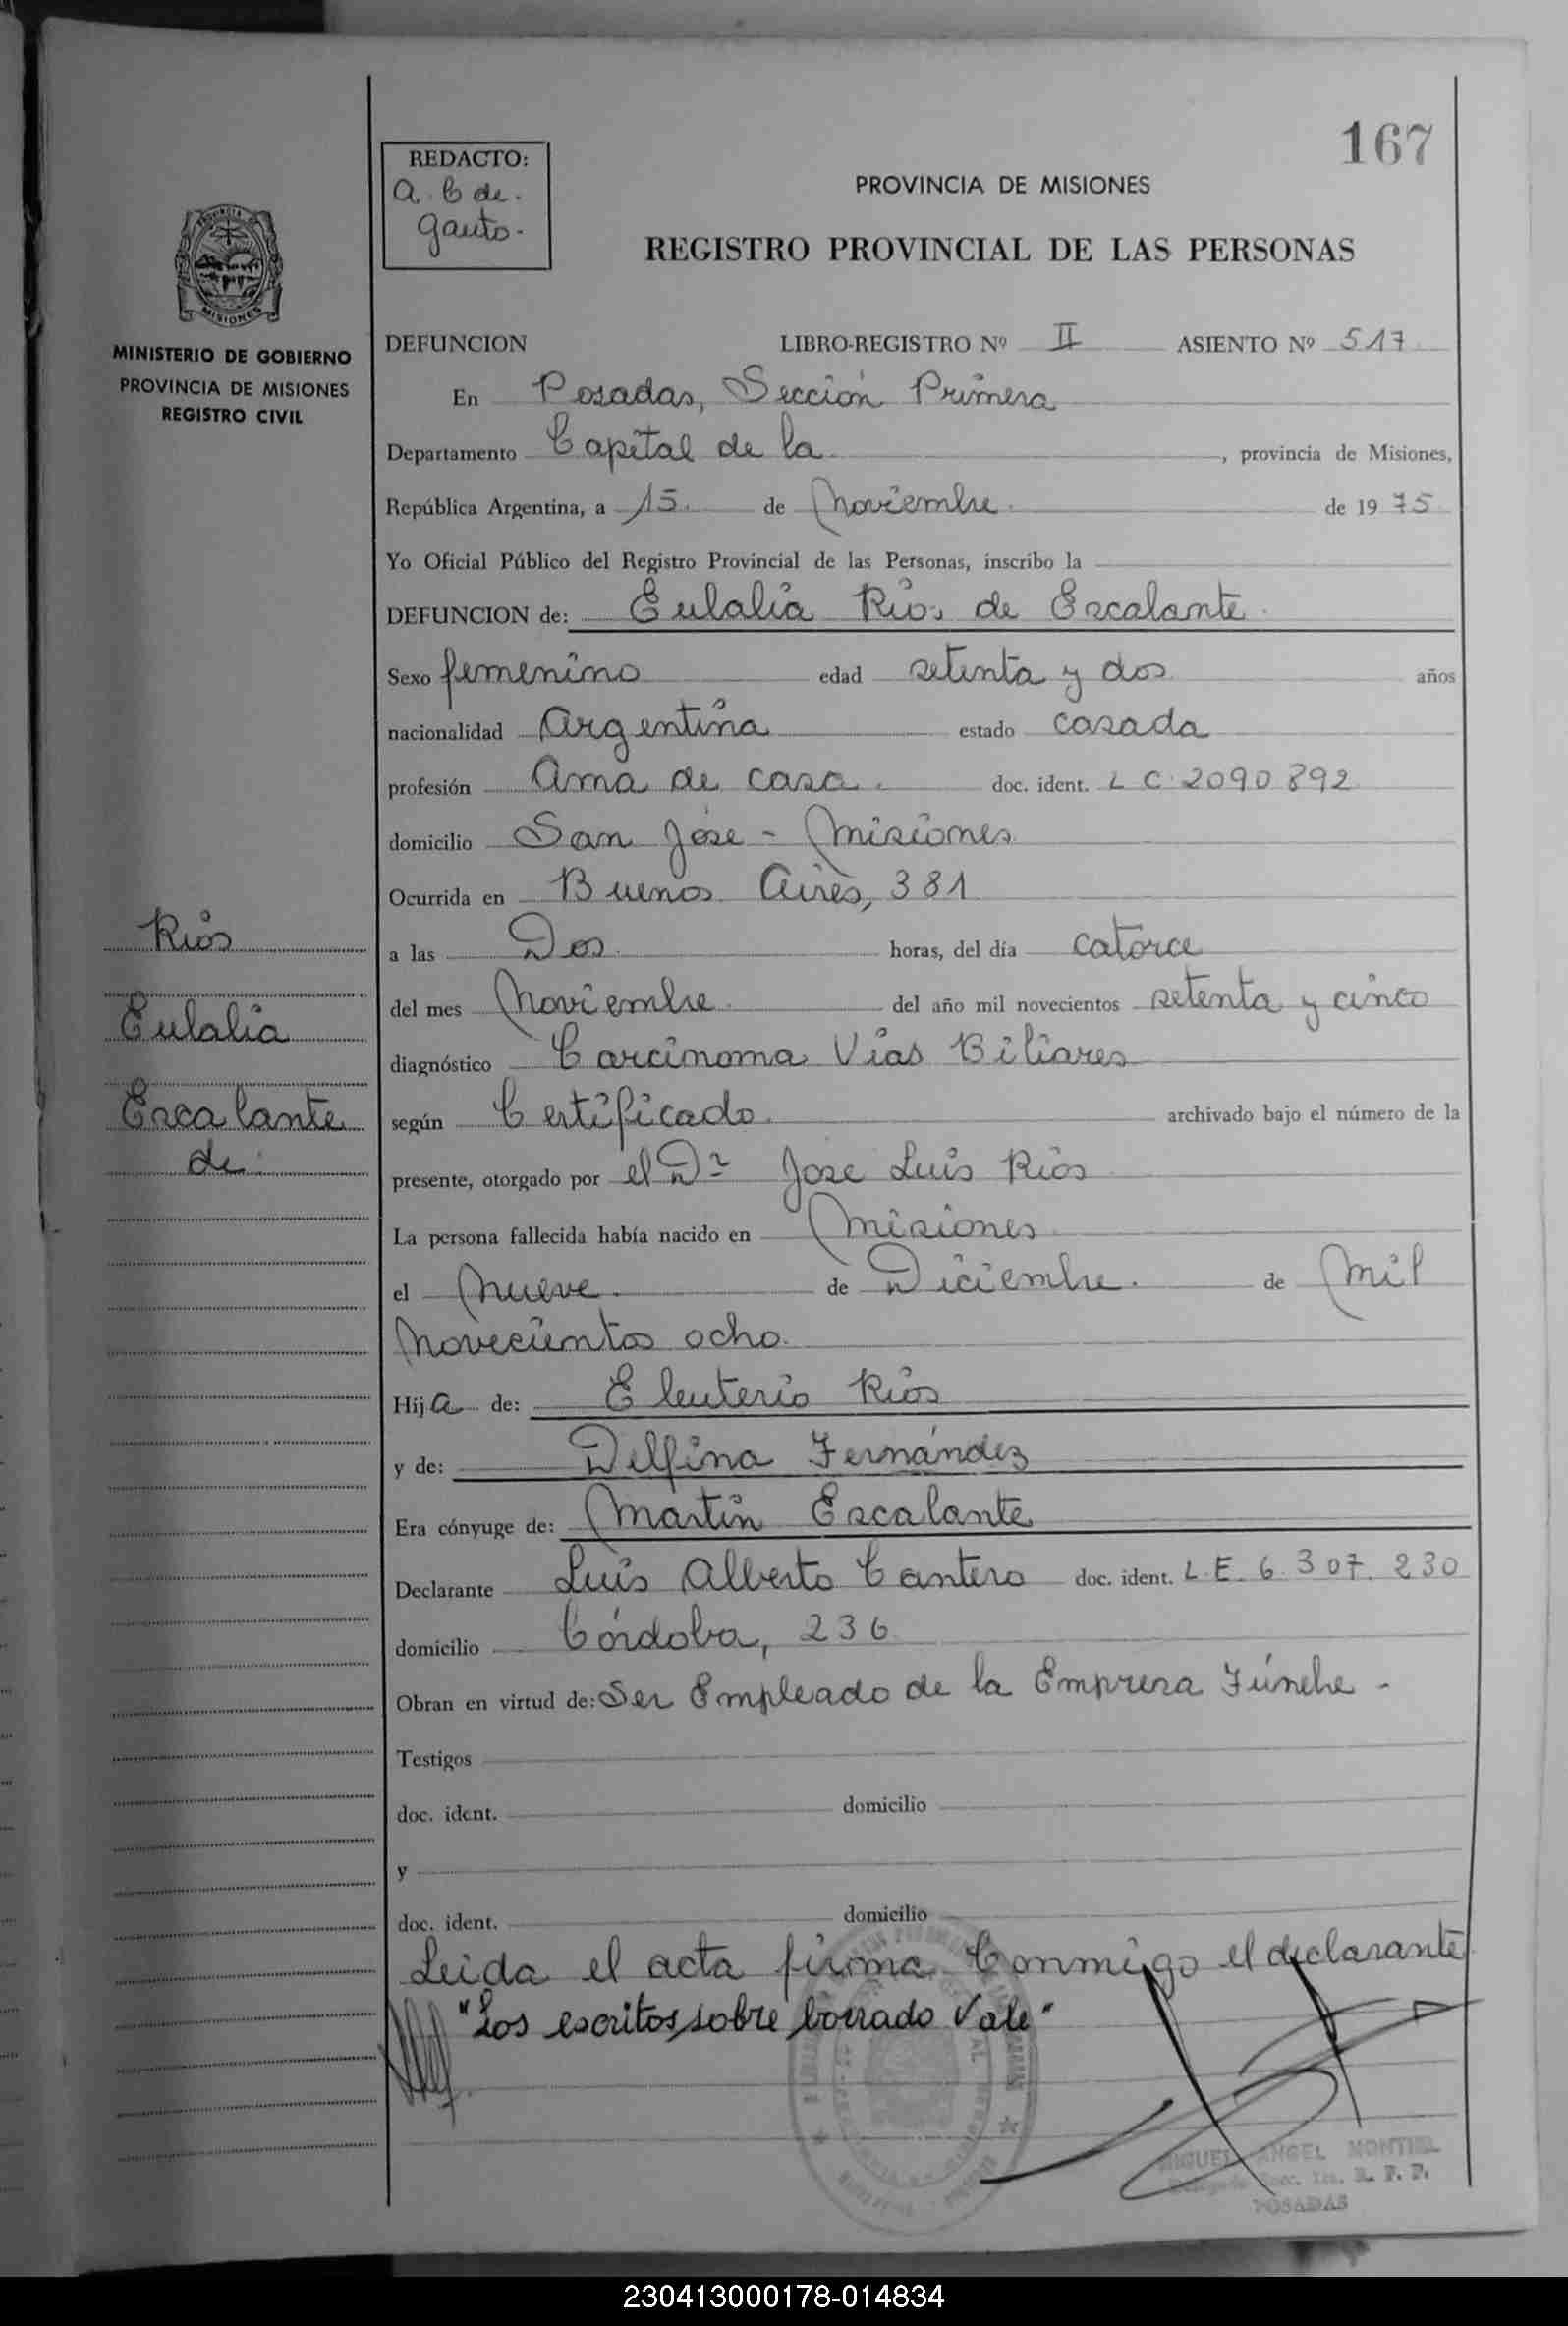 167
REDACTO:
a. C de.
Gauto.
PROVINCIA DE MISIONES
REGISTRO PROVINCIAL DE LAS PERSONAS
MISIONES
MINISTERIO DE GOBIERNO
PROVINCIA DE MISIONES
REGISTRO CIVIL
DEFUNCION LIBRO-REGISTRO Nº II ASIENTO Nº 517
En Posadas, Sección Primera
Departamento Capital de la, provincia de Misiones,
República Argentina, a 15. de Noviembre. de 1975
Yo Oficial Público del Registro Provincial de las Personas, inscribo la
DEFUNCION de: Eulalia Rios de Escalante.
Sexo femenino edad setenta y dos años
nacionalidad Argentina estado casada
profesión Ama de casa. doc. ident. L C 2090 892
domicilio San José - Misiones
Ocurrida en Buenos Aires, 381
a las Dos horas, del día catorce
del mes Noviembre. del año mil novecientos setenta y cinco
diagnóstico Carcinoma Vias Biliares
según Certificado. archivado bajo el número de la
presente, otorgado por el Dr Jose Luis Rios
La persona fallecida había nacido en Misiones
el Nueve. de Diciembre. de Mil
Novecientos ocho.
Hija de: Eleuterio Rios
y de: Delfina Fernández
Era cónyuge de: Martin Escalante
Declarante Luis Alberto Cantero doc. ident. L.E. 6.307.230
domicilio Córdoba, 236
Obran en virtud de: Ser Empleado de la Empresa Fúnebre -
Testigos
doc. ident. domicilio
y
doc. ident. domicilio
Leida el acta firma Conmigo el declarante
"Los escritos sobre borrado Vale"
Rios
Eulalia
Escalante
de
MIGUEL ANGEL MONTIEL
R. P. P.
POSADAS
230413000178-014834